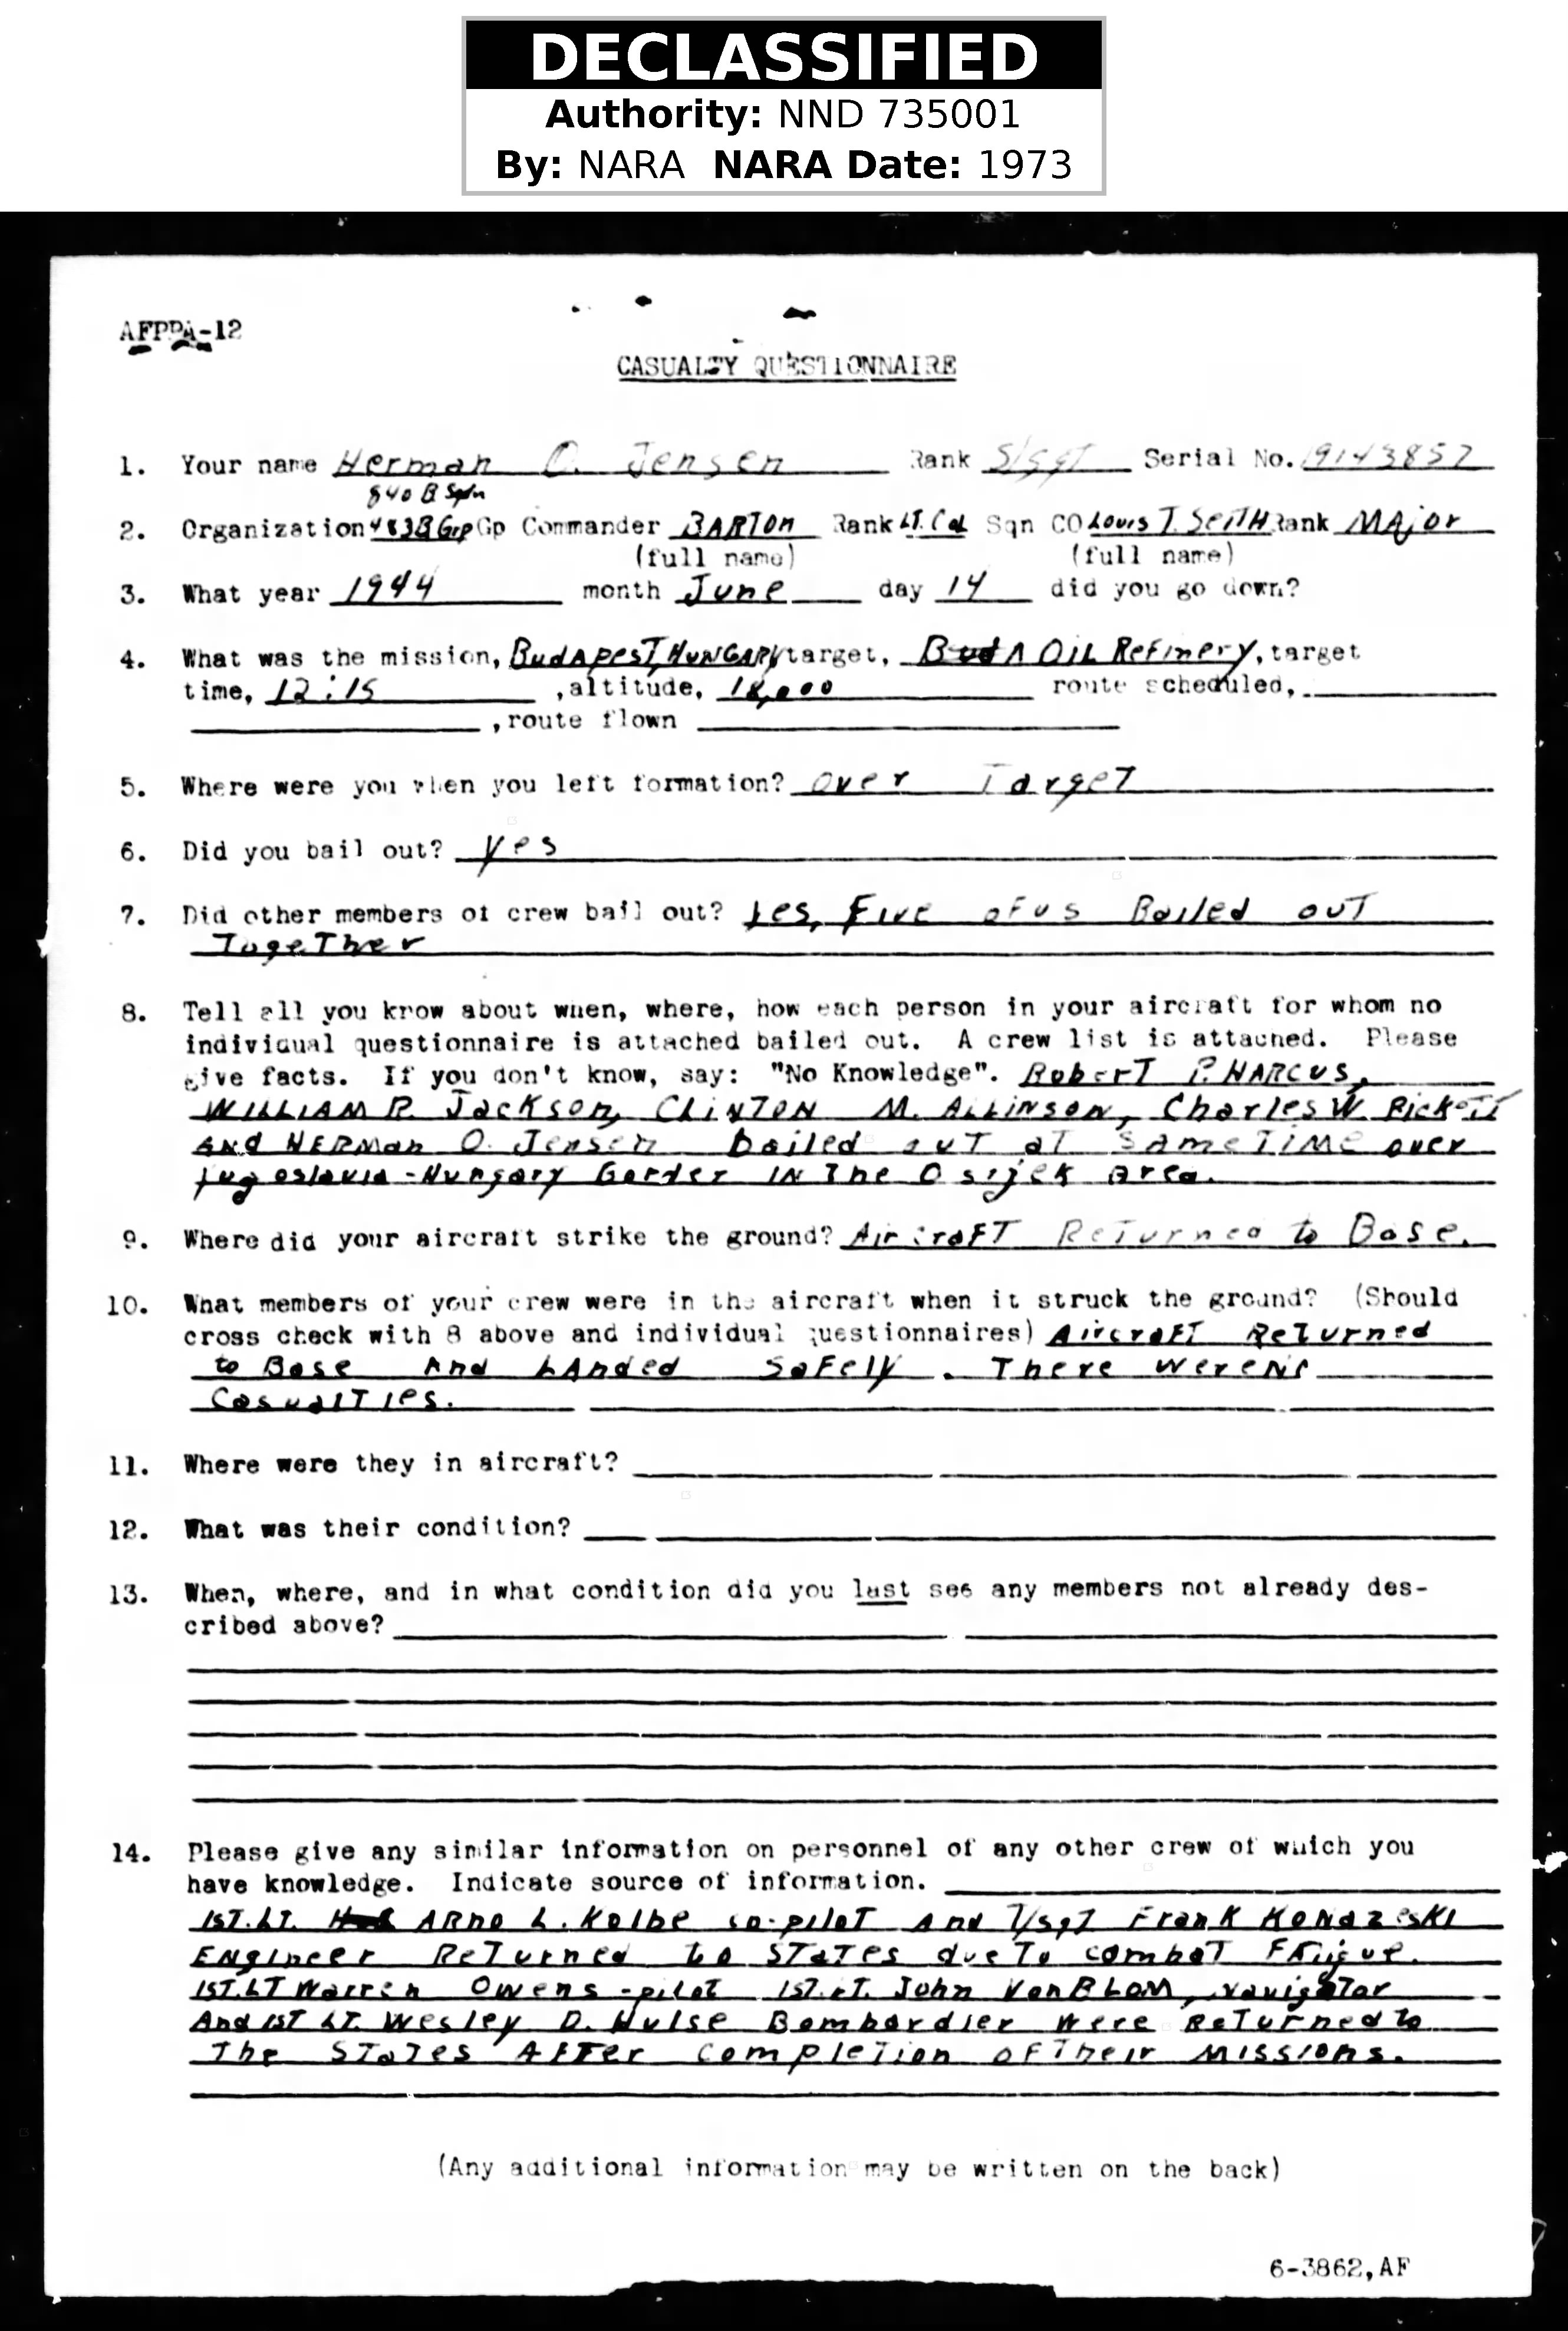 DECLASSIFIED
Authority: NND 735001
By: NARA NARA Date: 1973
AFPPA-12
CASUALTY QUESTIONNAIRE
1. Your name Herman O. Jensen Rank S/Sgt Serial No. 19143857
840 B Sqdn
2. Organization 483 B Grp Gp Commander BARTON Rank LT. Col Sqn CO Louis T. Seith Rank MAjor
(full name) (full name)
3. What year 1944 month June day 14 did you go down?
4. What was the mission, BudApesT, HuNGARY target, BudA OIL Refinery, target
time, 12:15 , altitude, 18,000 route scheduled,
, route flown
5. Where were you when you left formation? over Target
6. Did you bail out? yes
7. Did other members of crew bail out? Yes, Five of us Bailed ouT
TogeTher
8. Tell all you know about when, where, how each person in your aircraft for whom no
individual questionnaire is attached bailed out. A crew list is attached. Please
give facts. If you don't know, say: "No Knowledge". RoberT P. HARCUS,
WILLIAM R. JacKson, CLINTON M. ALLINSON, Charles W. RickeTT
ANd HERMan O. Jensen bailed ouT aT same TIME over
yugoslavia-Hungary Border IN The Osijek area.
9. Where did your aircraft strike the ground? AircraFT ReTurned to Base.
10. What members of your crew were in the aircraft when it struck the ground? (Should
cross check with 8 above and individual questionnaires) AircraFT ReTurned
to Base And LAnded SaFely. There were No
CasualTies.
11. Where were they in aircraft?
12. What was their condition?
13. When, where, and in what condition did you last see any members not already des-
cribed above?
14. Please give any similar information on personnel of any other crew of which you
have knowledge. Indicate source of information.
1ST. LT. ARno L. Kolbe co-piloT And T/sgT FranK KoNAzesKI
ENgineer ReTurned to STaTes due To combaT FATigue.
1ST. LT Warren Owens -piloT 1ST. LT. John VonBLOM, Navigator
And 1ST LT. Wesley D. Hulse Bombardier were ReTurned to
The STaTes AFTer compleTion oF Their missions.
(Any additional information may be written on the back)
6-3862, AF